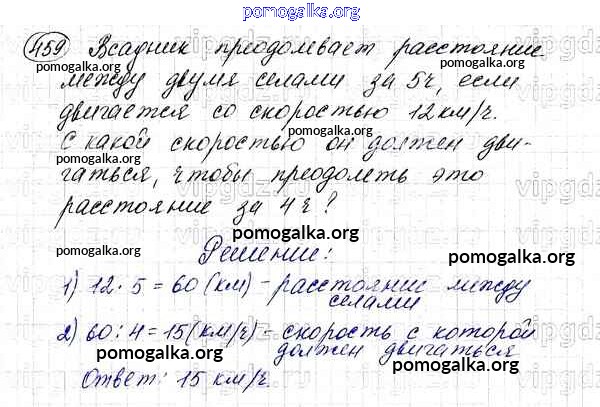 pomogalka.org
459 Всадник преодолевает расстояние
pomogalka.org pomogalka.org
между двумя селами за 5ч, если
двигается со скоростью 12км/ч.
pomogalka.org
С какой скоростью он должен дви-
pomogalka.org
гаться, чтобы преодолеть это
pomogalka.org
расстояние за 4ч?
pomogalka.org
Решение:
pomogalka.org pomogalka.org
1) 12·5=60(км)-расстояние между
селами
pomogalka.org
2) 60:4=15(км/ч)-скорость с которой
должен двигаться
pomogalka.org
pomogalka.org
Ответ: 15 км/ч.